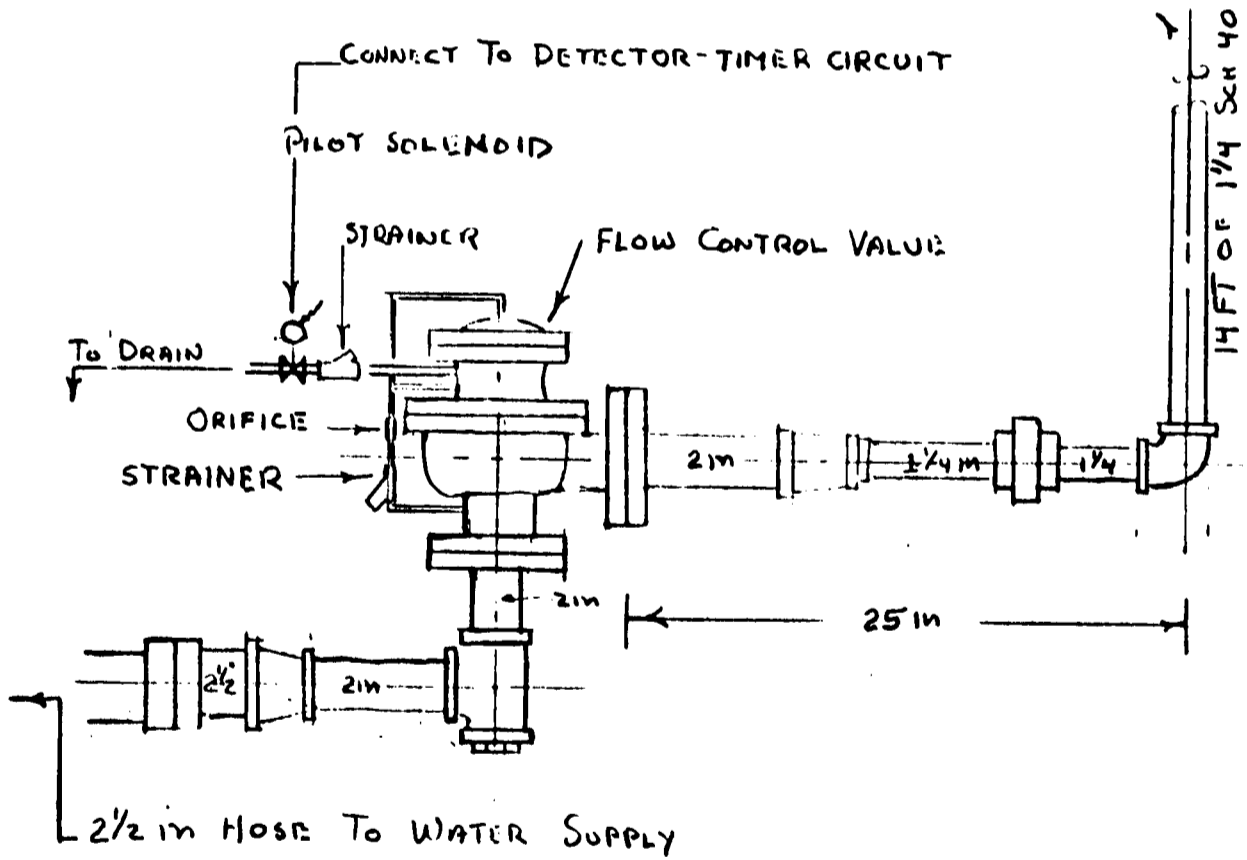 CONNECT TO DETECTOR-TIMER CIRCUIT
PILOT SOLENOID
STRAINER
FLOW CONTROL VALUE
TO DRAIN
ORIFICE
STRAINER
2in
1¼ in
1¼
14 FT OF 1¼ SCH 40
2in
25 in
2½"
2in
2½ in HOSE TO WATER SUPPLY